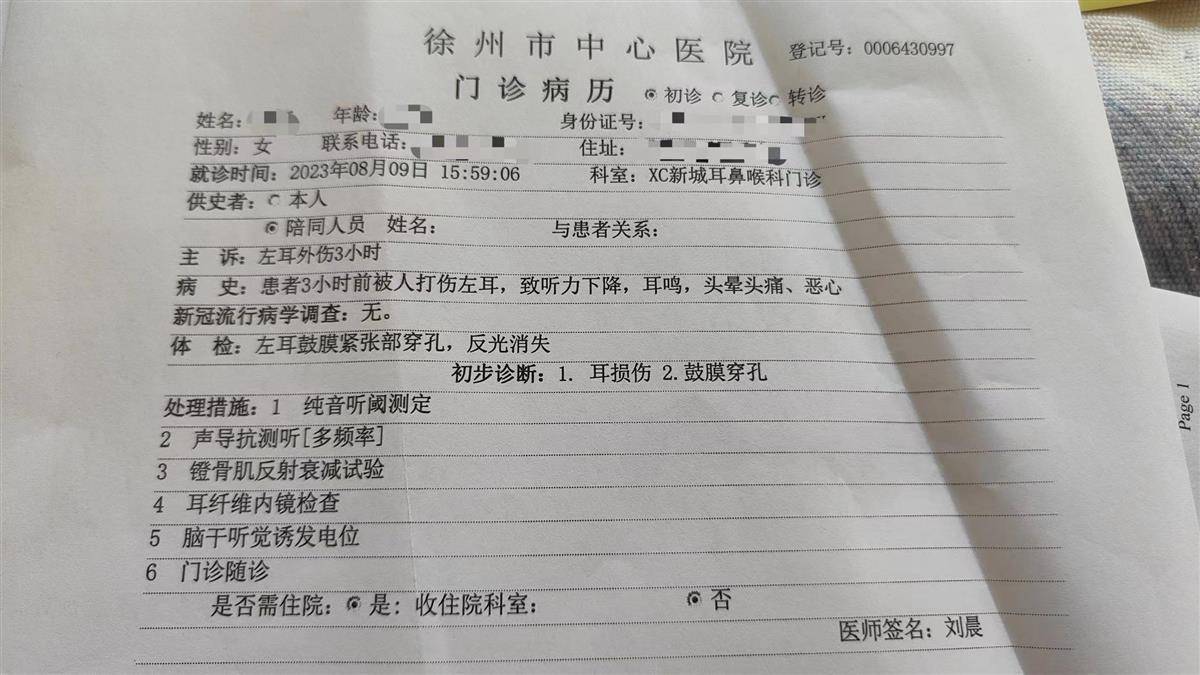 徐州市中心医院 登记号：0006430997
门诊病历 初诊 复诊 转诊
姓名： 年龄： 身份证号：
性别：女 联系电话： 住址：
就诊时间：2023年08月09日 15:59:06 科室：XC新城耳鼻喉科门诊
供史者： 本人
陪同人员 姓名： 与患者关系：
主 诉：左耳外伤3小时
病 史：患者3小时前被人打伤左耳，致听力下降，耳鸣，头晕头痛、恶心
新冠流行病学调查：无。
体 检：左耳鼓膜紧张部穿孔，反光消失
初步诊断：1. 耳损伤 2.鼓膜穿孔
处理措施：1 纯音听阈测定
2 声导抗测听[多频率]
3 镫骨肌反射衰减试验
4 耳纤维内镜检查
5 脑干听觉诱发电位
6 门诊随诊
是否需住院： 是：收住院科室： 否
医师签名：刘晨
Page 1